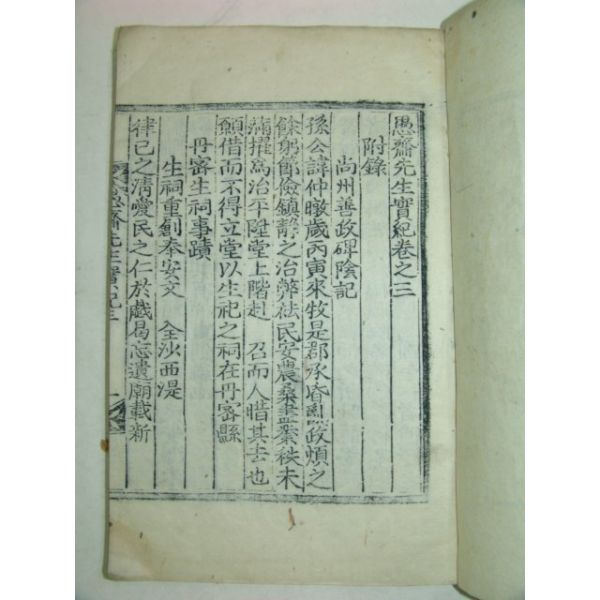 愚齋先生實紀卷之三
附錄
尙州善政碑陰記
孫公諱仲暾歲丙寅來牧是郡承昏亂政煩之
餘躬節儉鎭静之治弊祛民安農桑畫業秩未
滿擢爲治平陞堂上階赴 召而人惜其去也
願借而不得立堂以生祀之祠在丹密縣
丹密生祠事蹟
生祠重創奉安文 全沙西湜
律己之清愛民之仁於戱曷忘遺廟載新
愚齋先生實紀三